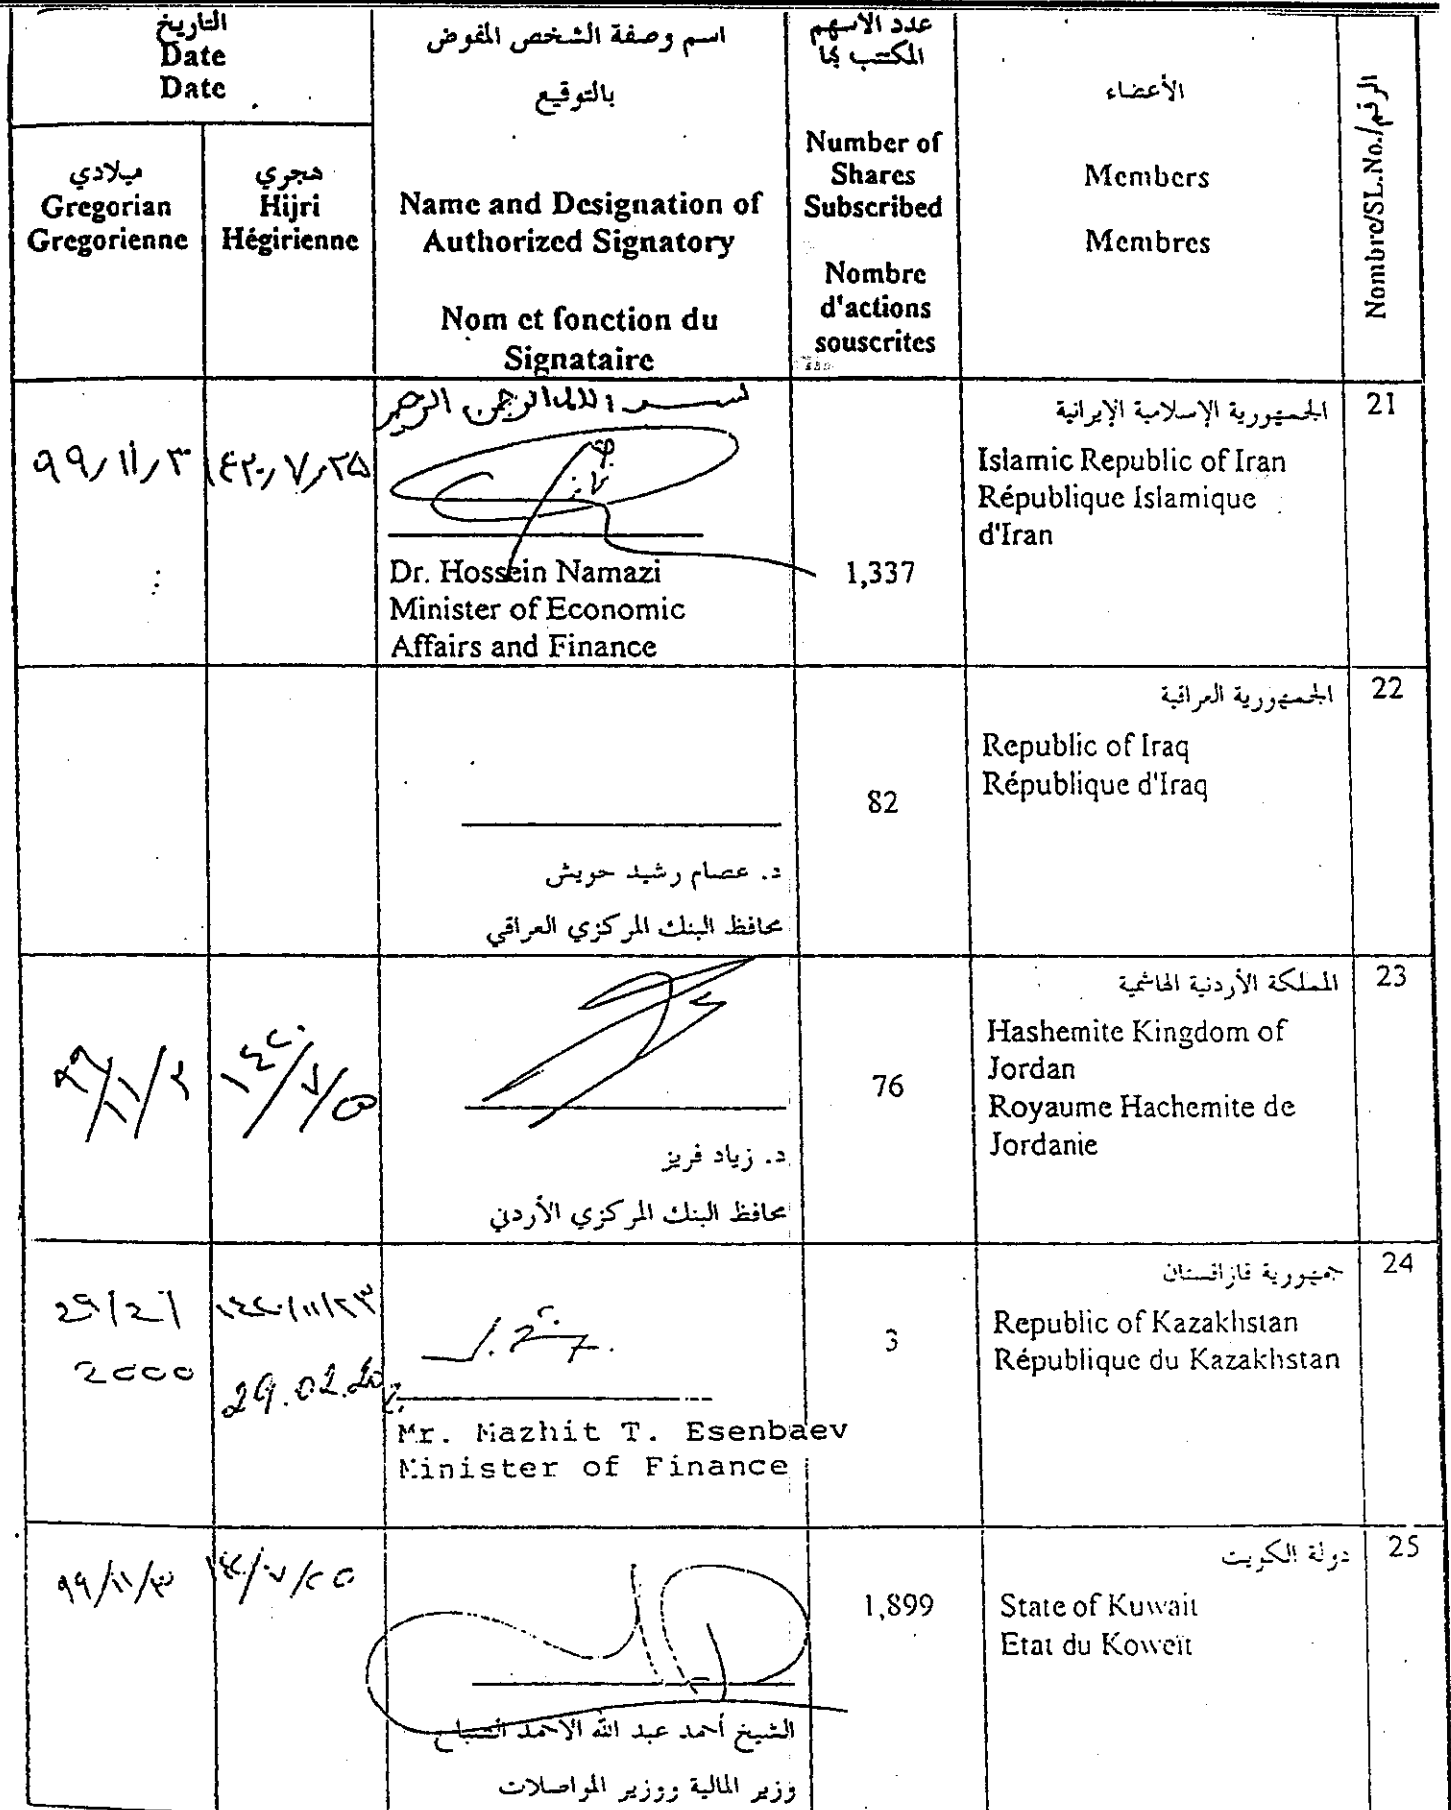 التاريخ
Date
Date
ميلادي
Gregorian
Gregorienne
هجري
Hijri
Hégirienne
اسم وصفة الشخص المفوض
بالتوقيع
Name and Designation of
Authorized Signatory
Nom et fonction du
Signataire
عدد الأسهم
المكتتب بها
Number of
Shares
Subscribed
Nombre
d'actions
souscrites
الأعضاء
Members
Membres
الرقم/Nombre/SL.No.
٩٩/١١/٣
١٤٢٠/٧/٢٥
بسم الله الرحمن الرحيم
Dr. Hossein Namazi
Minister of Economic
Affairs and Finance
1,337
الجمهورية الإسلامية الإيرانية
Islamic Republic of Iran
République Islamique
d'Iran
21
د. عصام رشيد حويش
محافظ البنك المركزي العراقي
82
الجمهورية العراقية
Republic of Iraq
République d'Iraq
22
د. زياد فريز
محافظ البنك المركزي الأردني
76
المملكة الأردنية الهاشمية
Hashemite Kingdom of
Jordan
Royaume Hachemite de
Jordanie
23
2000
١٤٢٠/١١/٢٣
Mr. Mazhit T. Esenbaev
Minister of Finance
3
جمهورية قازاقستان
Republic of Kazakhstan
République du Kazakhstan
24
٩٩/١١/٣
١٤٢٠/٧/٢٥
الشيخ أحمد عبد الله الاحمد الصباح
وزير المالية ووزير المواصلات
1,899
دولة الكويت
State of Kuwait
Etat du Koweït
25